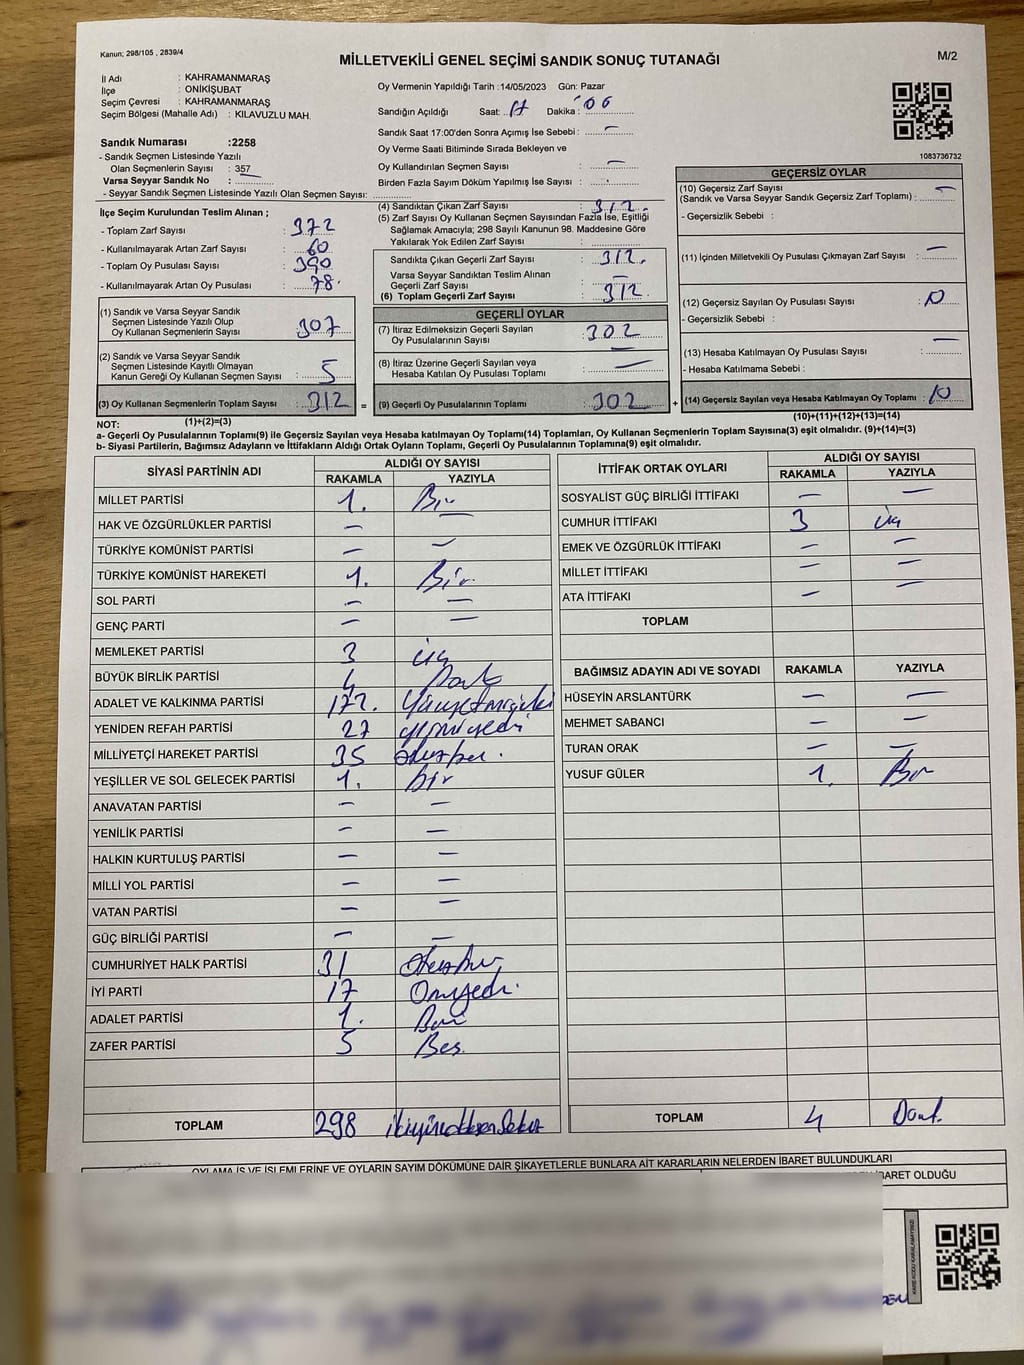 Kanun; 298/105 , 2839/4
MİLLETVEKİLİ GENEL SEÇİMİ SANDIK SONUÇ TUTANAĞI
M/2
İl Adı : KAHRAMANMARAŞ
İlçe : ONİKİŞUBAT
Seçim Çevresi : KAHRAMANMARAŞ
Seçim Bölgesi (Mahalle Adı) : KILAVUZLU MAH.
Sandık Numarası :2258
- Sandık Seçmen Listesinde Yazılı
Olan Seçmenlerin Sayısı : 357
Varsa Seyyar Sandık No :
- Seyyar Sandık Seçmen Listesinde Yazılı Olan Seçmen Sayısı:
Oy Vermenin Yapıldığı Tarih :14/05/2023 Gün: Pazar
Sandığın Açıldığı Saat: 17 Dakika : 06
Sandık Saat 17:00'den Sonra Açımış İse Sebebi : —
Oy Verme Saati Bitiminde Sırada Bekleyen ve
Oy Kullandırılan Seçmen Sayısı : —
Birden Fazla Sayım Döküm Yapılmış İse Sayısı :
1083736732
İlçe Seçim Kurulundan Teslim Alınan ;
- Toplam Zarf Sayısı : 372
- Kullanılmayarak Artan Zarf Sayısı : 60
- Toplam Oy Pusulası Sayısı : 390
- Kullanılmayarak Artan Oy Pusulası : 78.
(1) Sandık ve Varsa Seyyar Sandık
Seçmen Listesinde Yazılı Olup
Oy Kullanan Seçmenlerin Sayısı : 307
(2) Sandık ve Varsa Seyyar Sandık
Seçmen Listesinde Kayıtlı Olmayan
Kanun Gereği Oy Kullanan Seçmen Sayısı : 5
(3) Oy Kullanan Seçmenlerin Toplam Sayısı : 312 =
(1)+(2)=(3)
(4) Sandıktan Çıkan Zarf Sayısı : 312.
(5) Zarf Sayısı Oy Kullanan Seçmen Sayısından Fazla İse, Eşitliği
Sağlamak Amacıyla; 298 Sayılı Kanunun 98. Maddesine Göre
Yakılarak Yok Edilen Zarf Sayısı :
Sandıkta Çıkan Geçerli Zarf Sayısı : 312.
Varsa Seyyar Sandıktan Teslim Alınan
Geçerli Zarf Sayısı : —
(6) Toplam Geçerli Zarf Sayısı : 312
GEÇERLİ OYLAR
(7) İtiraz Edilmeksizin Geçerli Sayılan
Oy Pusulalarının Sayısı : 302
(8) İtiraz Üzerine Geçerli Sayılan veya
Hesaba Katılan Oy Pusulası Toplamı : —
(9) Geçerli Oy Pusulalarının Toplamı : 302 +
GEÇERSİZ OYLAR
(10) Geçersiz Zarf Sayısı
(Sandık ve Varsa Seyyar Sandık Geçersiz Zarf Toplamı) : —
- Geçersizlik Sebebi :
(11) İçinden Milletvekili Oy Pusulası Çıkmayan Zarf Sayısı : —
(12) Geçersiz Sayılan Oy Pusulası Sayısı : 10
- Geçersizlik Sebebi :
(13) Hesaba Katılmayan Oy Pusulası Sayısı : —
- Hesaba Katılmama Sebebi :
(14) Geçersiz Sayılan veya Hesaba Katılmayan Oy Toplamı : 10
(10)+(11)+(12)+(13)=(14)
NOT:
a- Geçerli Oy Pusulalarının Toplamı(9) ile Geçersiz Sayılan veya Hesaba katılmayan Oy Toplamı(14) Toplamları, Oy Kullanan Seçmenlerin Toplam Sayısına(3) eşit olmalıdır. (9)+(14)=(3)
b- Siyasi Partilerin, Bağımsız Adayların ve İttifakların Aldığı Ortak Oyların Toplamı, Geçerli Oy Pusulalarının Toplamına(9) eşit olmalıdır.
SİYASİ PARTİNİN ADI ALDIĞI OY SAYISI
RAKAMLA YAZIYLA
MİLLET PARTİSİ 1. Bir
HAK VE ÖZGÜRLÜKLER PARTİSİ —
TÜRKİYE KOMÜNİST PARTİSİ — —
TÜRKİYE KOMÜNİST HAREKETİ 1. Bir
SOL PARTİ — —
GENÇ PARTİ — —
MEMLEKET PARTİSİ 3 üç
BÜYÜK BİRLİK PARTİSİ 4 Dört
ADALET VE KALKINMA PARTİSİ 172. Yüzyetmişiki
YENİDEN REFAH PARTİSİ 27 yirmiyedi
MİLLİYETÇİ HAREKET PARTİSİ 35 otuzbeş.
YEŞİLLER VE SOL GELECEK PARTİSİ 1. bir
ANAVATAN PARTİSİ — —
YENİLİK PARTİSİ — —
HALKIN KURTULUŞ PARTİSİ — —
MİLLİ YOL PARTİSİ — —
VATAN PARTİSİ — —
GÜÇ BİRLİĞİ PARTİSİ — —
CUMHURİYET HALK PARTİSİ 31 Otuzbir
İYİ PARTİ 17 Onyedi.
ADALET PARTİSİ 1. Bir
ZAFER PARTİSİ 5 Beş.
TOPLAM 298 ikiyüzdoksansekiz
İTTİFAK ORTAK OYLARI ALDIĞI OY SAYISI
RAKAMLA YAZIYLA
SOSYALİST GÜÇ BİRLİĞİ İTTİFAKI — —
CUMHUR İTTİFAKI 3 üç
EMEK VE ÖZGÜRLÜK İTTİFAKI — —
MİLLET İTTİFAKI — —
ATA İTTİFAKI — —
TOPLAM
BAĞIMSIZ ADAYIN ADI VE SOYADI RAKAMLA YAZIYLA
HÜSEYİN ARSLANTÜRK — —
MEHMET SABANCI — —
TURAN ORAK — —
YUSUF GÜLER 1. Bir
TOPLAM 4 Dört.
OYLAMA İŞ VE İŞLEMLERİNE VE OYLARIN SAYIM DÖKÜMÜNE DAİR ŞİKAYETLERLE BUNLARA AİT KARARLARIN NELERDEN İBARET BULUNDUKLARI
BARET OLDUĞU